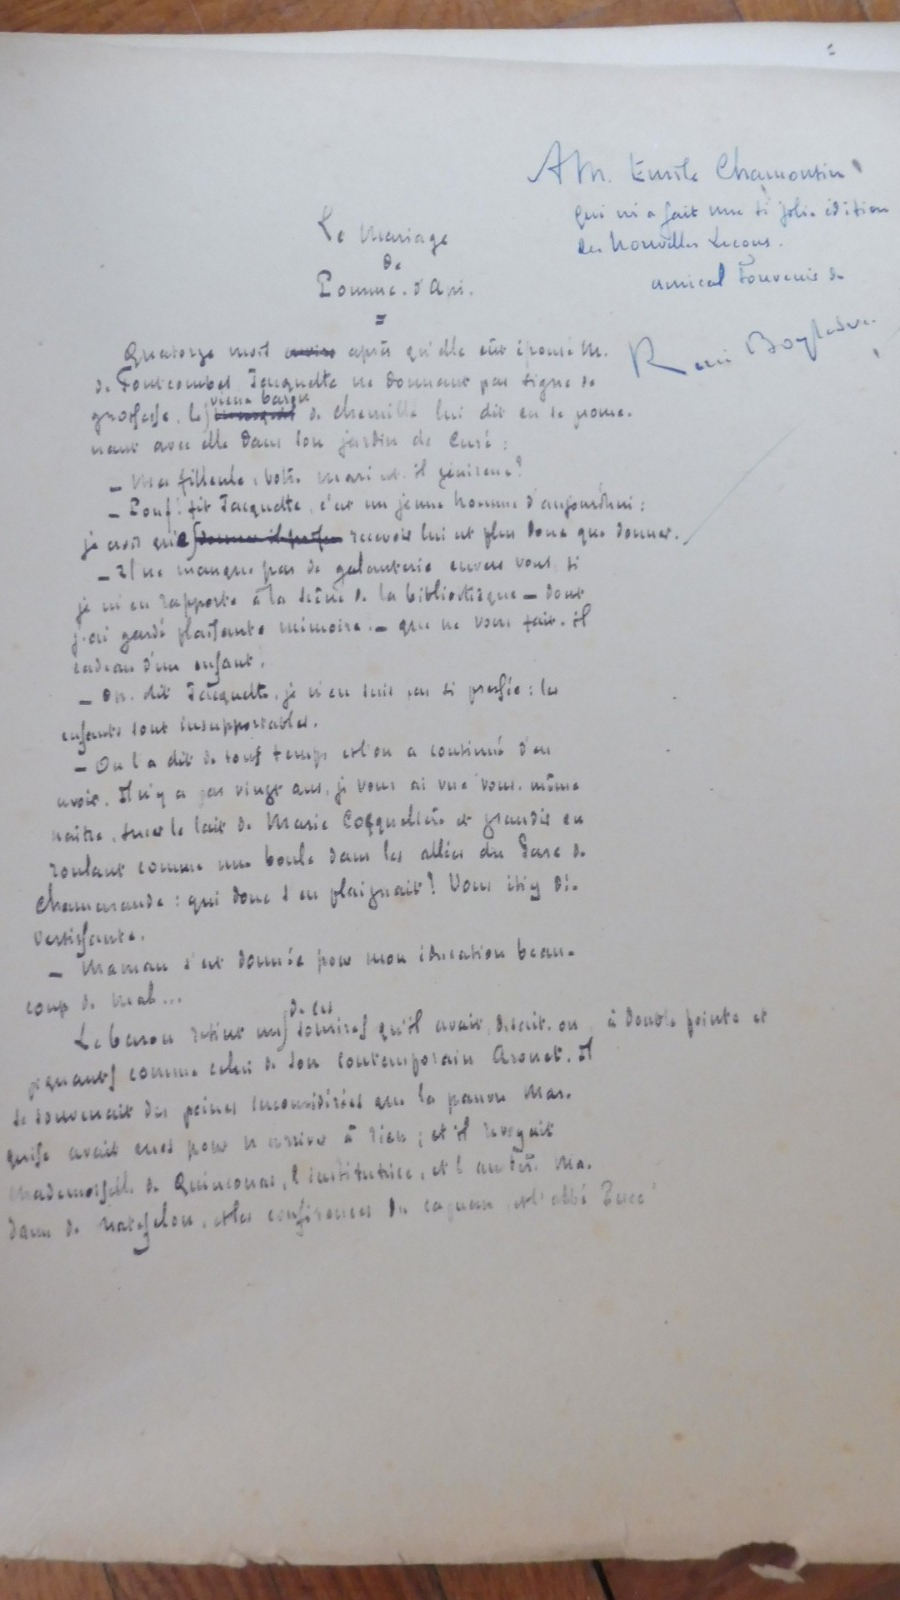 A M. Emile Chamontin
qui m'a fait une si jolie édition
des Nouvelles Leçons.
amical souvenir de
René Boylesve
Le Mariage
de
Pomme-d'Api.
=
Quatorze mois après qu'elle eût épousé M.
de Fontcombes, Jacquette ne donnant pas signe de
grossesse, le vieux baron de Chemillé lui dit en se prome-
nant avec elle dans son jardin de curé :
— Ma filleule, votre mari est-il généreux ?
— Pouf ! fit Jacquette, c'est un jeune homme d'aujourd'hui :
je crois que recevoir lui est plus doux que donner.
— Il ne manque pas de galanterie envers vous, si
je m'en rapporte à la scène de la bibliothèque — dont
j'ai gardé plaisante mémoire. — que ne vous fait-il
cadeau d'un enfant !
— Oh ! dit Jacquette, je n'en suis pas si pressée : les
enfants sont insupportables.
— On l'a dit de tous temps et l'on a continué d'en
avoir. Il n'y a pas vingt ans, je vous ai vue vous-même
naître, sucer le lait de Marie Cocquelière et grandir en
roulant comme une boule dans les allées du parc de
Chamarande : qui donc s'en plaignait ? Vous étiez di-
vertissante.
— Maman s'est donnée pour mon éducation beau-
coup de mal...
Le baron retint un de ces sourires qu'il avait, disait-on, à double pointe et
piquants comme celui de son contemporain Arouet. Il
se souvenait des peines inconsidérées que la pauvre Mar-
quise avait eues pour n'arriver à rien ; et il revoyait
Mademoiselle de Quinconas, l'institutrice, et l'austère Ma-
dame de Matefelon, et les conférences du , et l'abbé Pucc